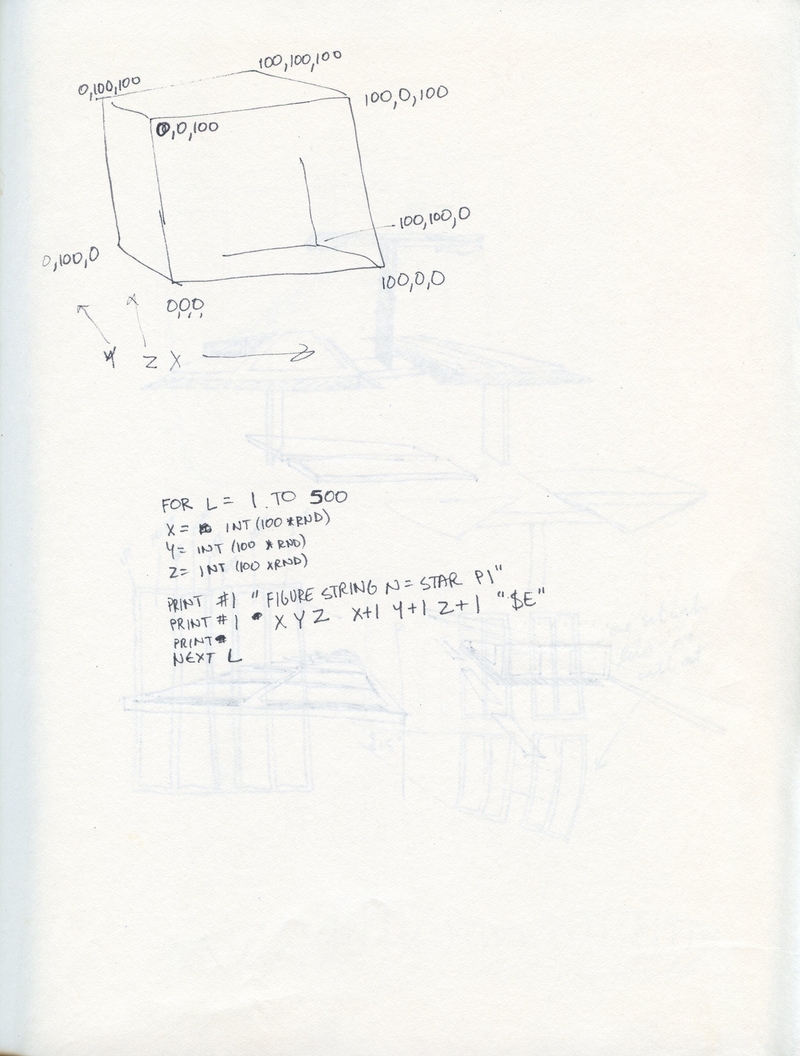 100,100,100
0,100,100
100,0,100
0,0,100
100,100,0
0,100,0
100,0,0
0,0,0,
Y Z X
FOR L = 1 TO 500
X = INT (100 *RND)
Y= INT (100 * RND)
Z= INT (100 *RND)
PRINT #1 "FIGURE STRING N= STAR P1"
PRINT #1 X Y Z X+1 Y+1 Z+1 "$E"
PRINT
NEXT L